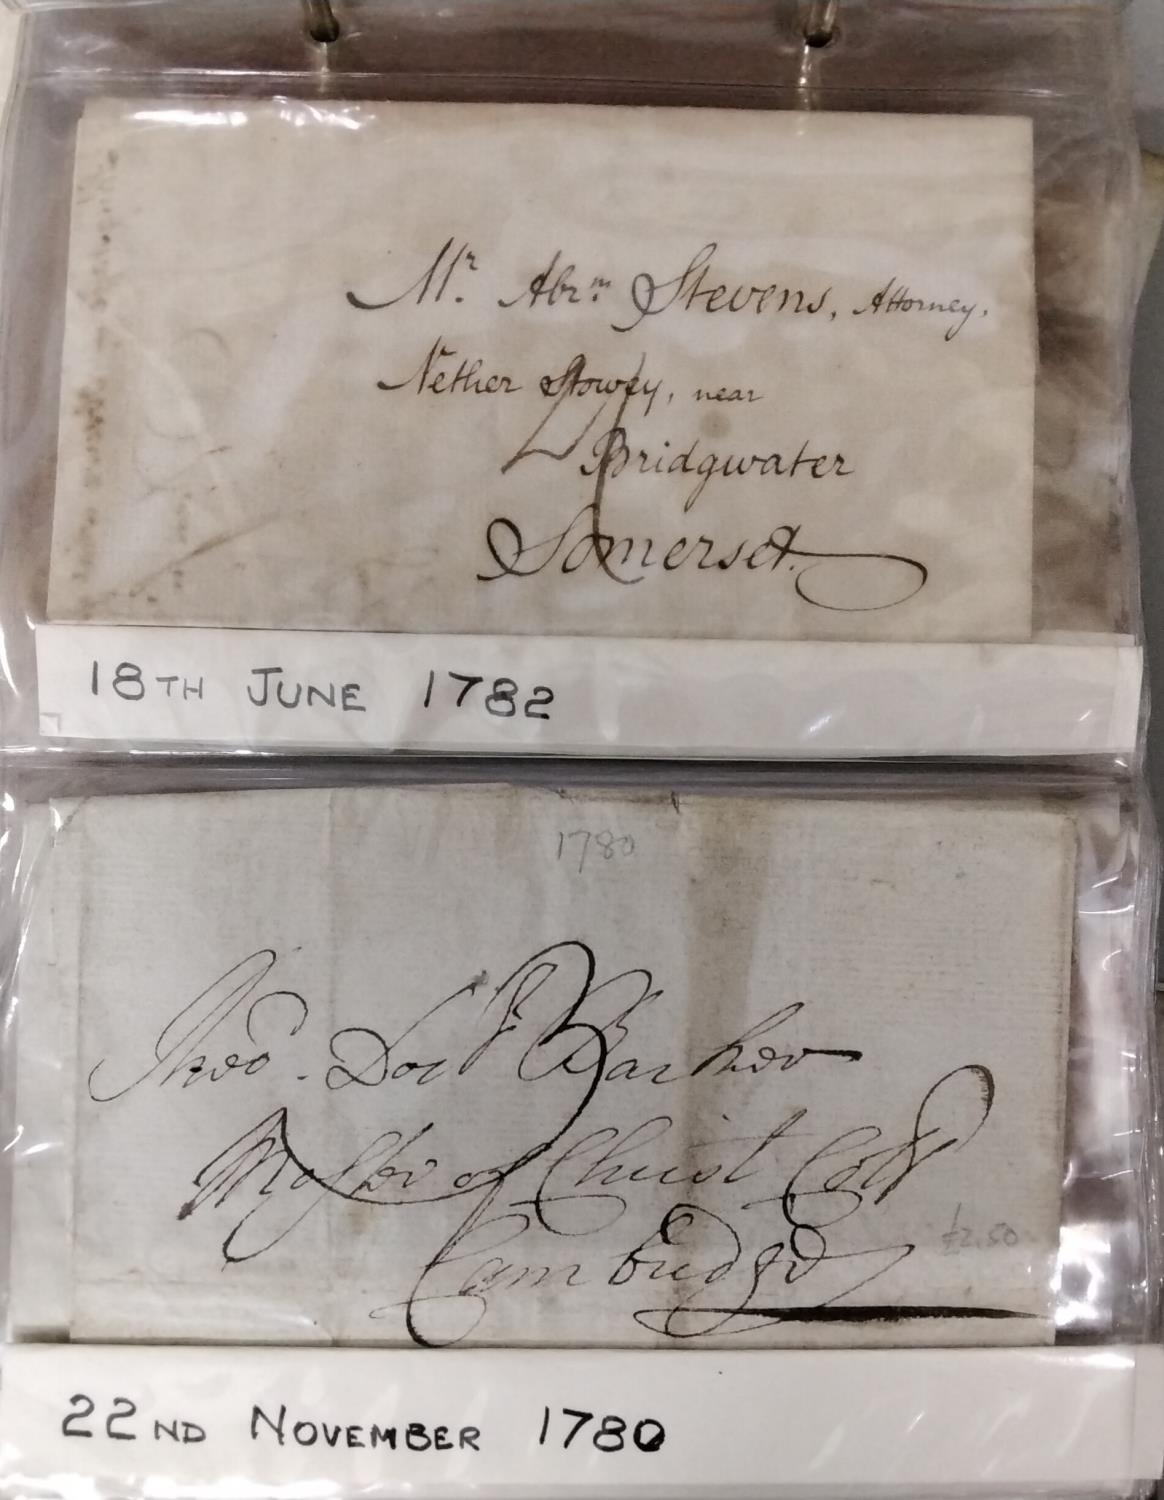 Mr. Abrm. Stevens, Attorney,
Nether Stowey, near
4
Bridgwater
Somerset.
18TH JUNE 1782
1780
Barker
Master of Christ Coll
Cambridge
£2.50
22ND NOVEMBER 1780